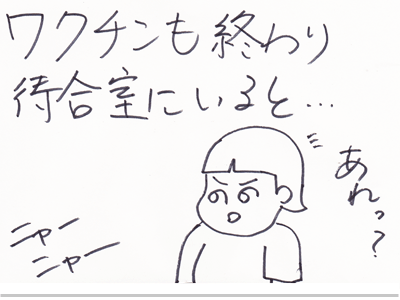 ワクチンも終わり
待合室にいると…
あれっ?
ニャー
ニャー